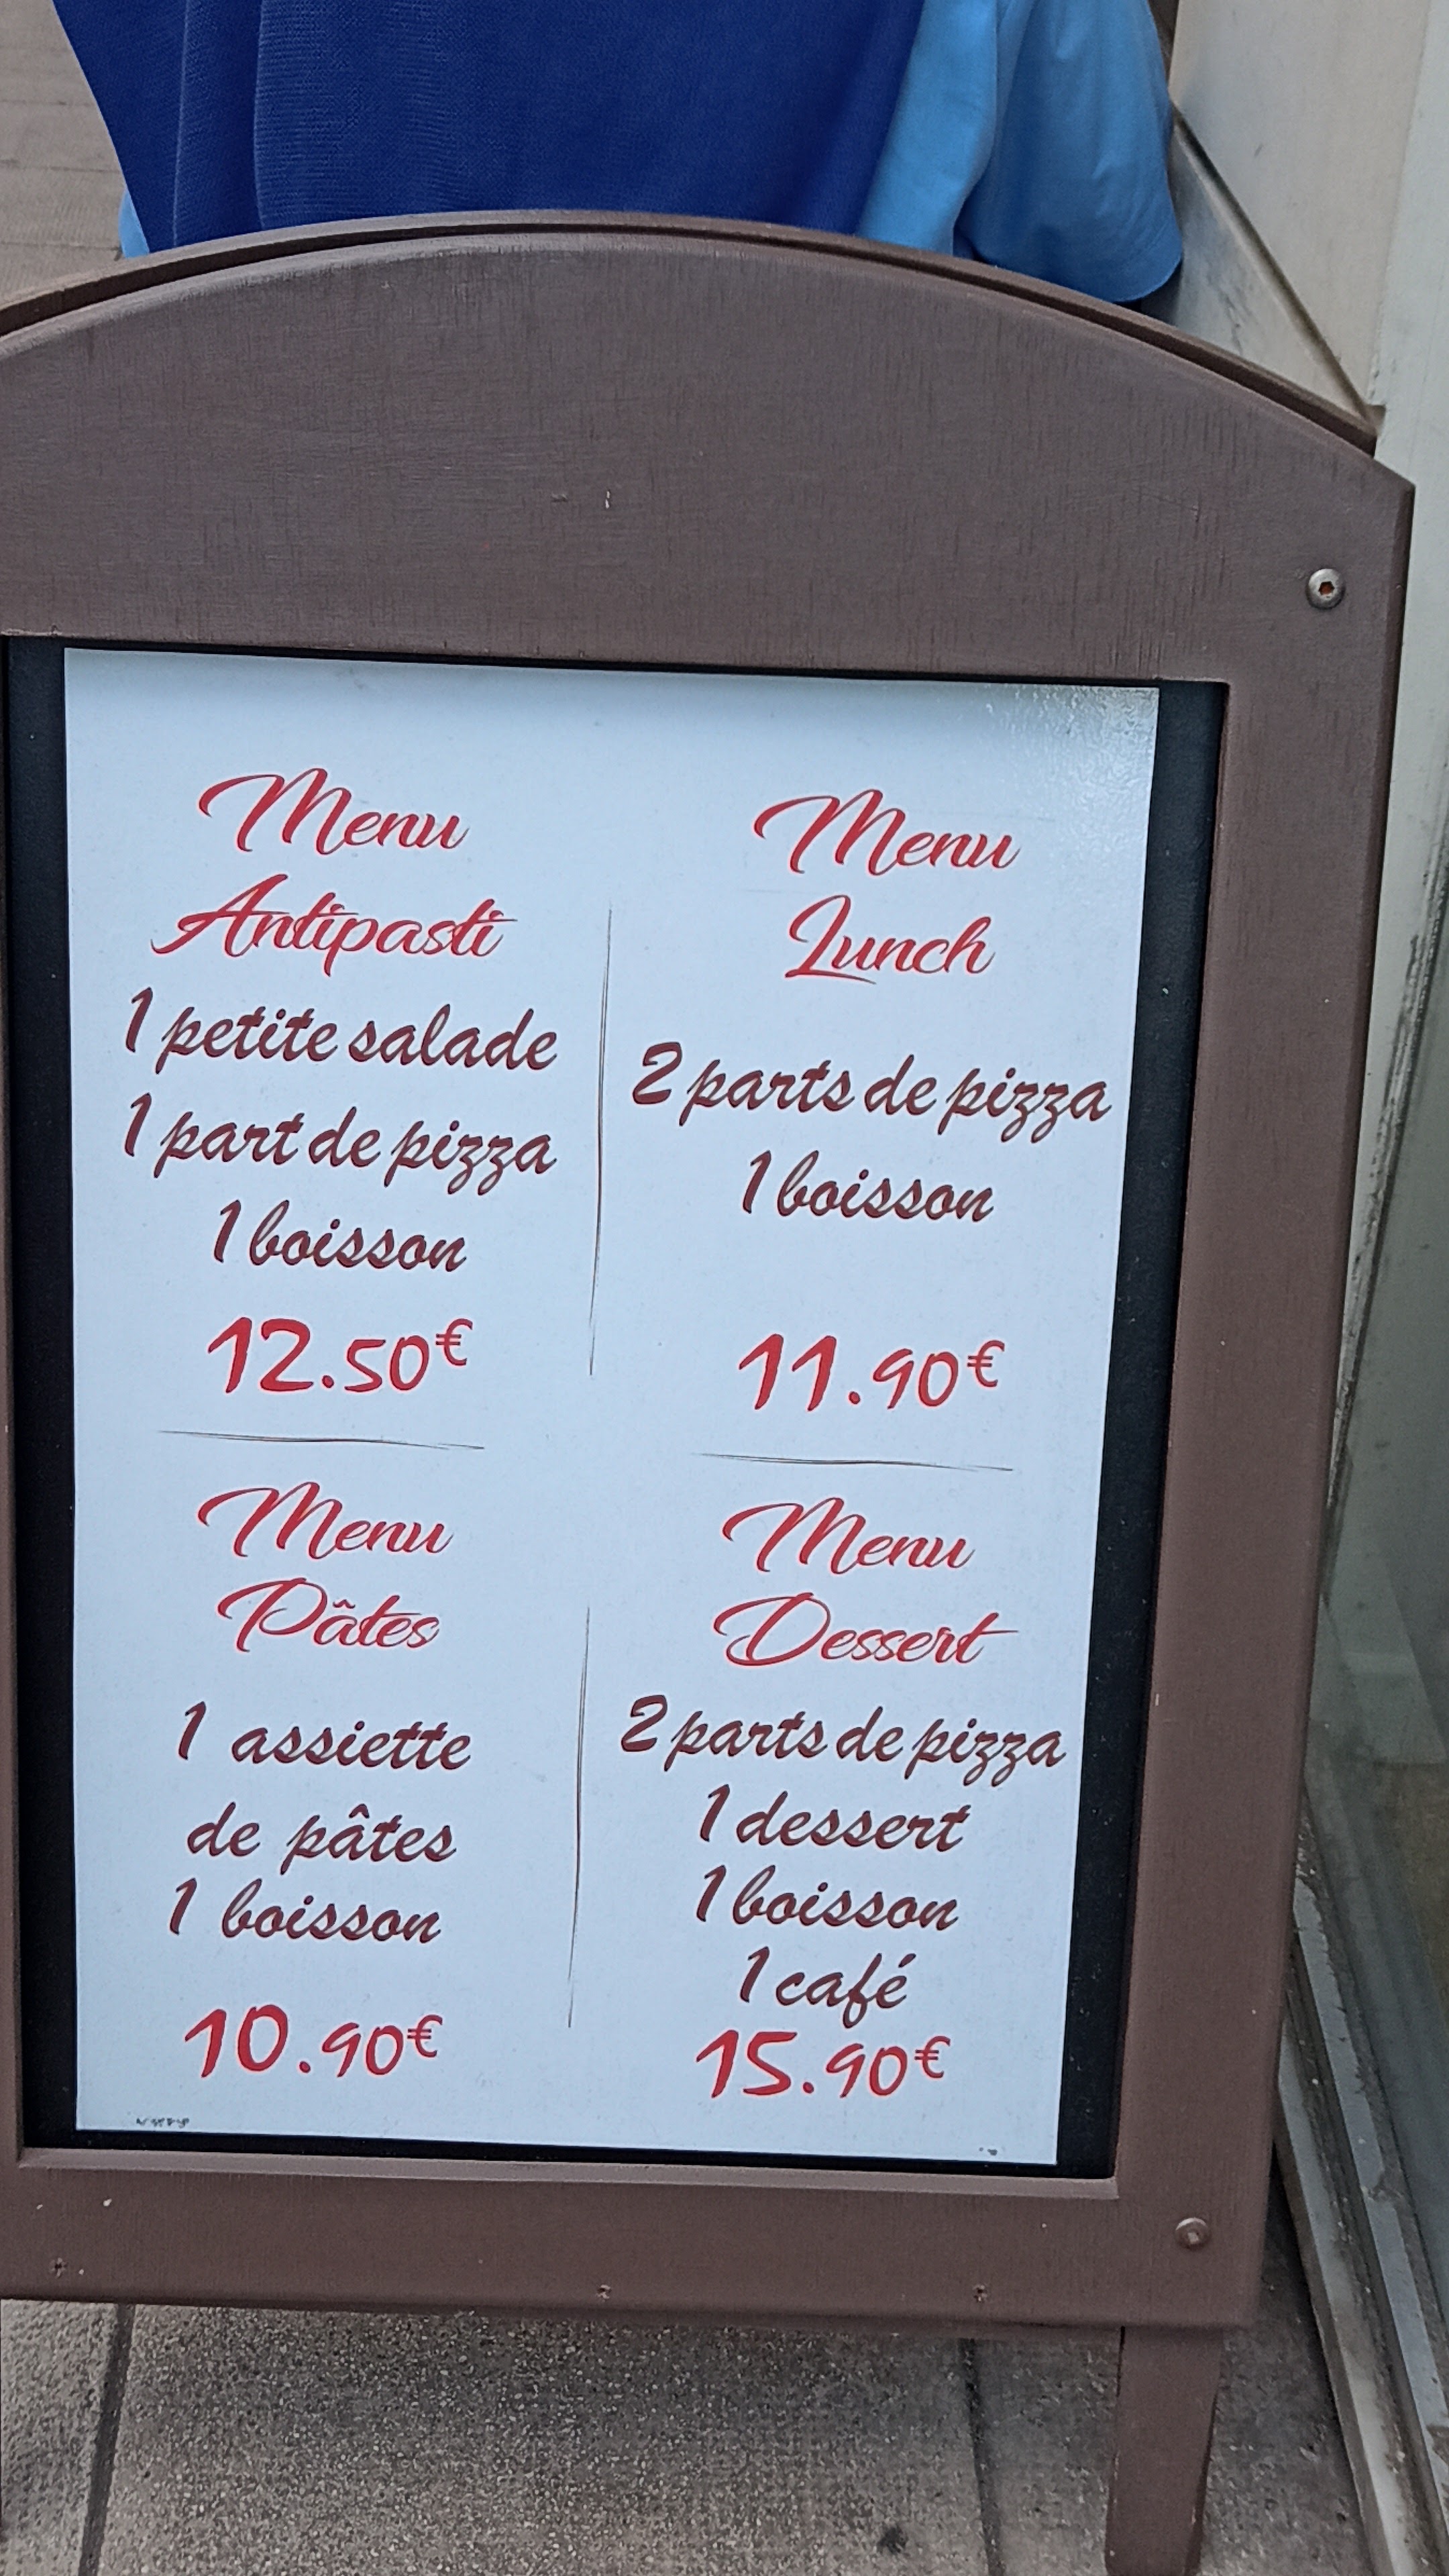 Menu
Antipasti
1 petite salade
1 part de pizza
1 boisson
12.50€
Menu
Lunch
2 parts de pizza
1 boisson
11.90€
Menu
Pâtes
1 assiette
de pâtes
1 boisson
10.90€
Menu
Dessert
2 parts de pizza
1 dessert
1 boisson
1 café
15.90€